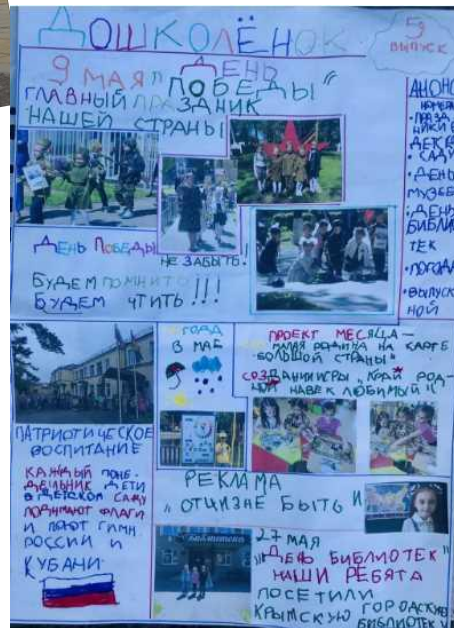 ДОШКОЛЁНОК
5 ВЫПУСК
9 МАЯ „ДЕНЬ
ПОБЕДЫ“
ГЛАВНЫЙ ПРАЗДНИК
НАШЕЙ СТРАНЫ
АНОНС
НОМЕРА
• ПРАЗД
НИКИ В
ДЕТСК
САДУ
• ДЕНЬ
МУЗЕЕ
• ДЕНЬ
БИБЛИО
ТЕК
• ПОГОДА
• ВЫПУСК
НОЙ
ДЕНЬ ПОБЕДЫ
НЕ ЗАБЫТЬ!
БУДЕМ ПОМНИТЬ
БУДЕМ ЧТИТЬ!!!
В МАЕ
ПРОЕКТ МЕСЯЦА —
МАЛАЯ РОДИНА НА КАРТЕ
БОЛЬШОЙ СТРАНЫ"
СОЗДАНИИ ИГРЫ „КРАЙ РОД-
НОЙ НАВЕК ЛЮБИМЫЙ"
ПАТРИОТИЧЕСКОЕ
ВОСПИТАНИЕ
КАЖДЫЙ ПОНЕ-
ДЕЛЬНИК ДЕТИ
В ДЕТСКОМ САДУ
ПОДНИМАЮТ ФЛАГИ
И ПОЮТ ГИМН
РОССИИ И
КУБАНИ
РЕКЛАМА
„ОТЧИЗНЕ БЫТЬ И
Библиотека
27 МАЯ
„ДЕНЬ БИБЛИОТЕК"
НАШИ РЕБЯТА
ПОСЕТИЛИ
КРЫМСКУЮ ГОРОДСКУЮ
БИБЛИОТЕКУ